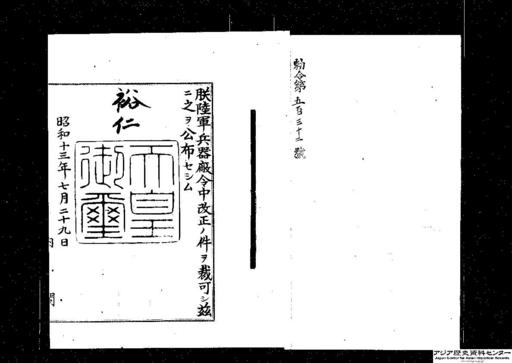 勅令第五百三十二號
朕陸軍兵器廠令中改正ノ件ヲ裁可シ茲
ニ之ヲ公布セシム
裕仁
天皇
御璽
昭和十三年七月二十九日
アジア歴史資料センター
Japan Center for Asian Historical Records